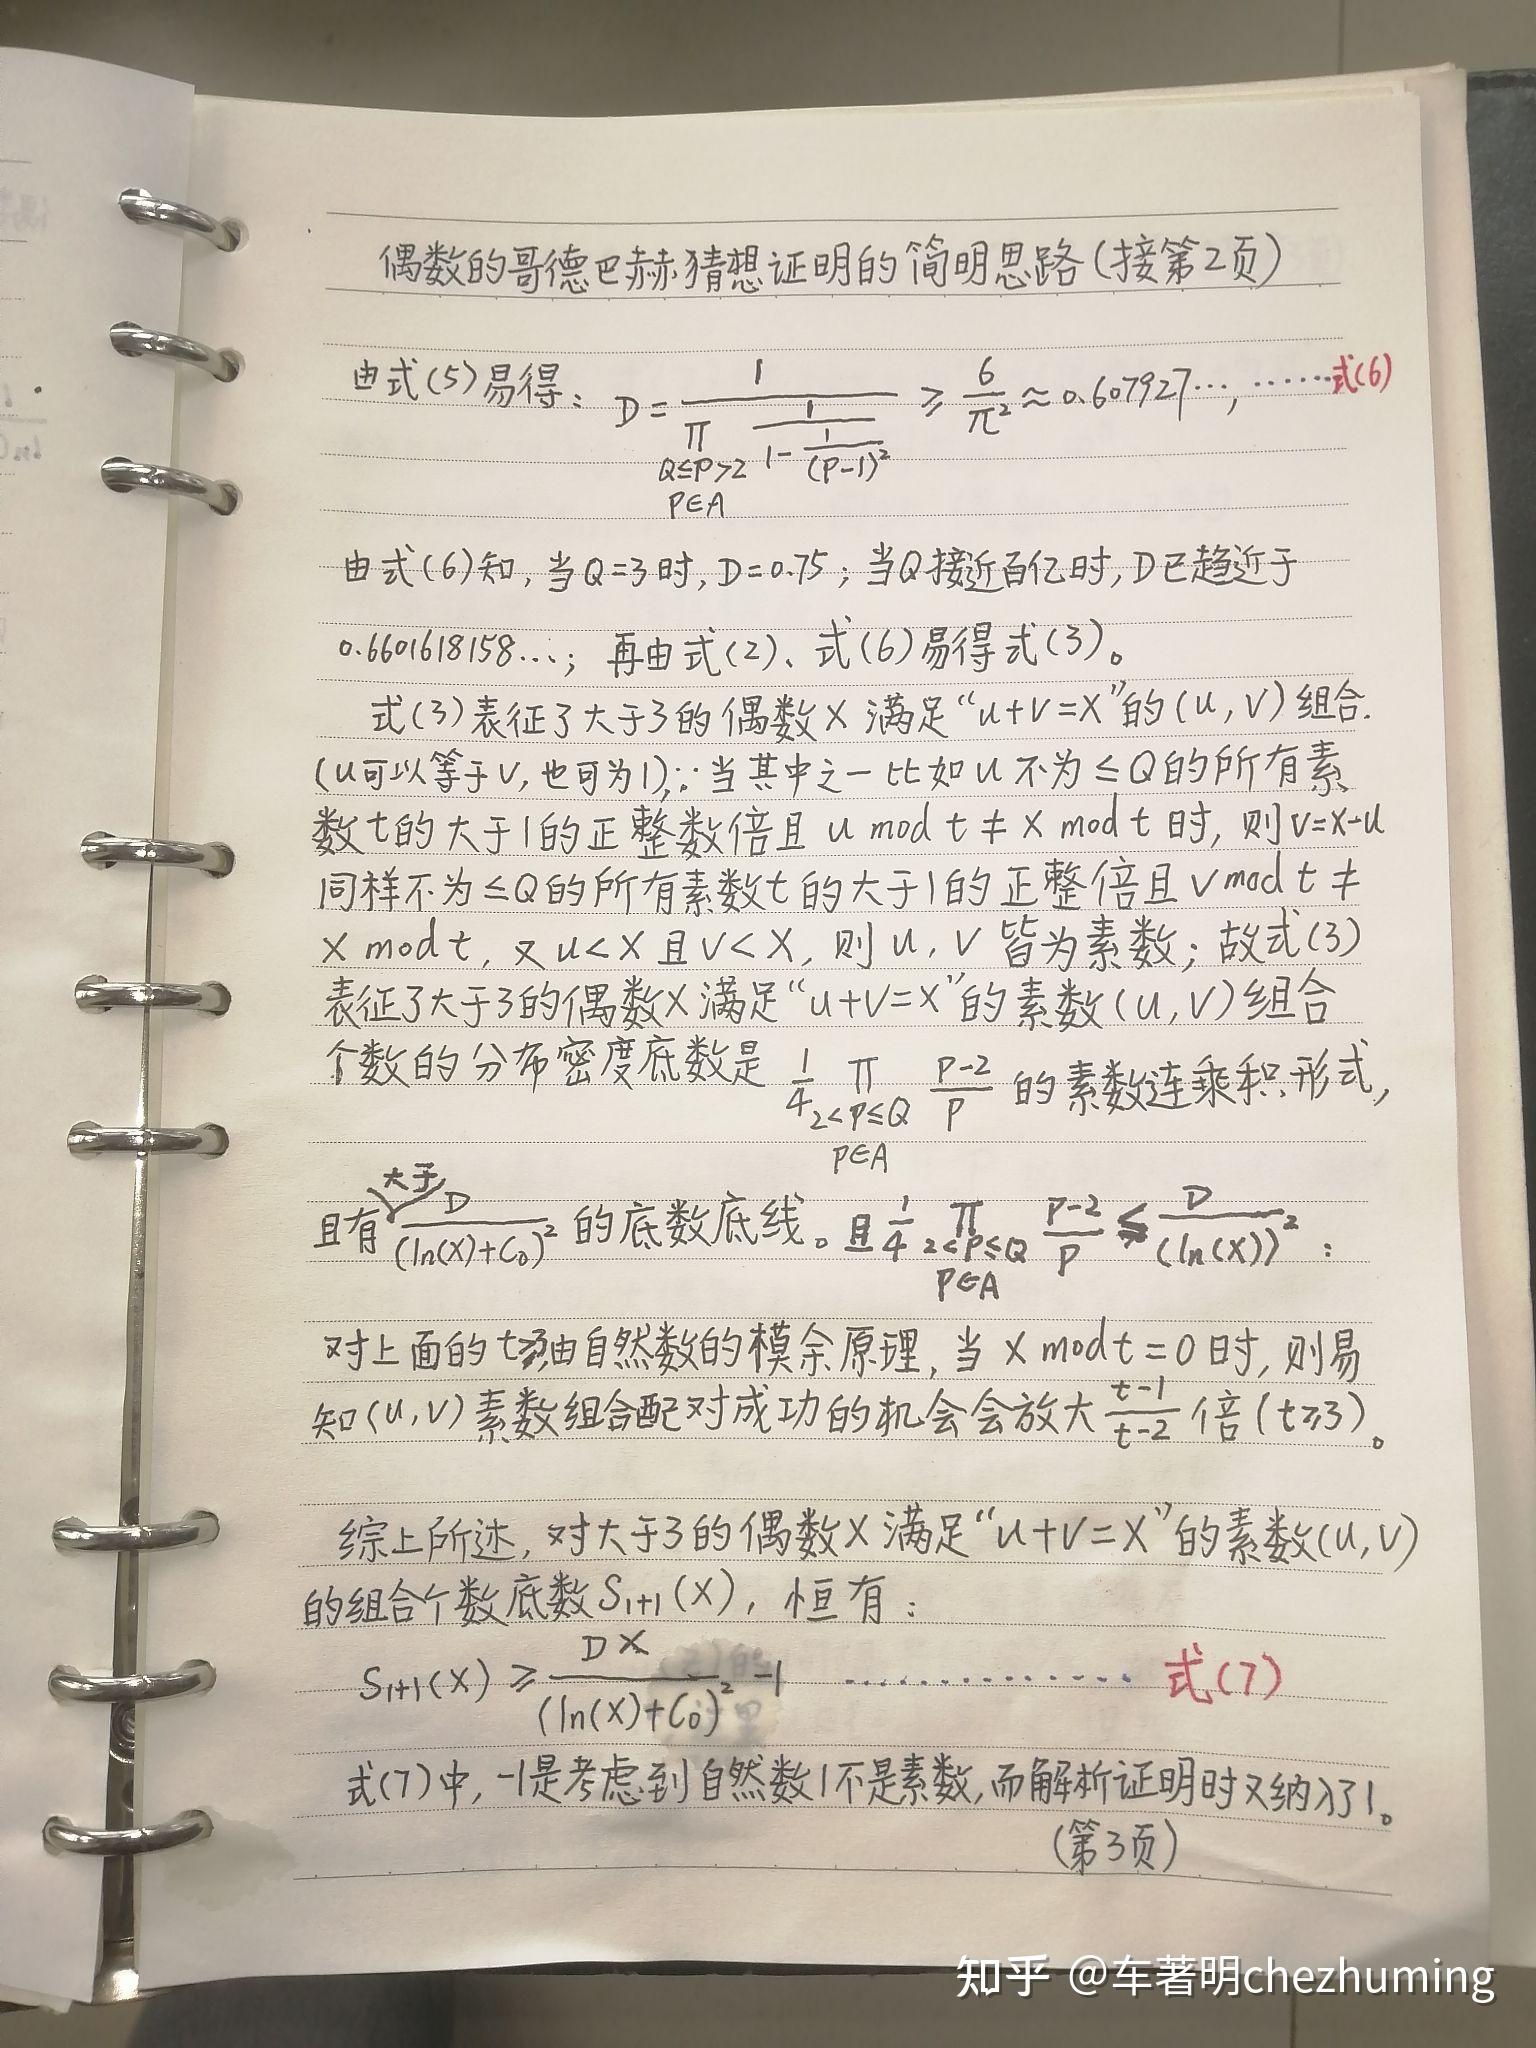 偶数的哥德巴赫猜想证明的简明思路(接第2页)
由式(5)易得: D = 1 / ∏_{Q≤P>2, P∈A} 1/(1 - 1/(P-1)²) ≥ 6/π² ≈ 0.607927…, ……式(6)
由式(6)知,当Q=3时,D=0.75;当Q接近百亿时,D已趋近于
0.6601618158…;再由式(2)、式(6)易得式(3)。
式(3)表征了大于3的偶数X满足“u+v=X”的(u,v)组合.
(u可以等于v,也可为1),∵当其中之一比如u不为≤Q的所有素
数t的大于1的正整数倍且u mod t ≠ X mod t时,则v=X-u
同样不为≤Q的所有素数t的大于1的正整倍且v mod t ≠
X mod t,又u<X且v<X,则u,v皆为素数;故式(3)
表征了大于3的偶数X满足“u+v=X”的素数(u,v)组合
个数的分布密度底数是 1/4 ∏_{2<P≤Q, P∈A} (P-2)/P 的素数连乘积形式,
且有大于 D/(ln(X)+C₀)² 的底数底线。且 1/4 ∏_{2<P≤Q, P∈A} (P-2)/P ≤ D/(ln(X))² :
对上面的t≥3,由自然数的模余原理,当X mod t = 0时,则易
知(u,v)素数组合配对成功的机会会放大 (t-1)/(t-2) 倍(t≥3)。
综上所述,对大于3的偶数X满足“u+v=X”的素数(u,v)
的组合个数底数S₁₊₁(X),恒有:
S₁₊₁(X) ≥ DX/(ln(X)+C₀)² -1 ………… 式(7)
式(7)中,-1是考虑到自然数1不是素数,而解析证明时又纳入了1。
(第3页)
知乎 @车著明chezhuming